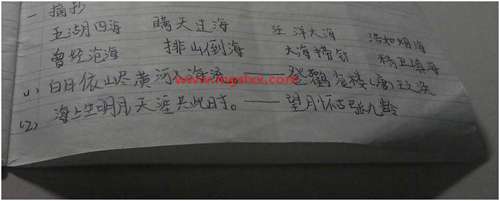 一 摘抄
五湖四海 瞒天过海 汪洋大海 浩如烟海
曾经沧海 排山倒海 大海捞针 精卫填海
(1) 白日依山尽黄河入海流 登鹳雀楼(唐)王之涣
www.
(2) 海上生明月,天涯共此时。——望月怀古 张九龄